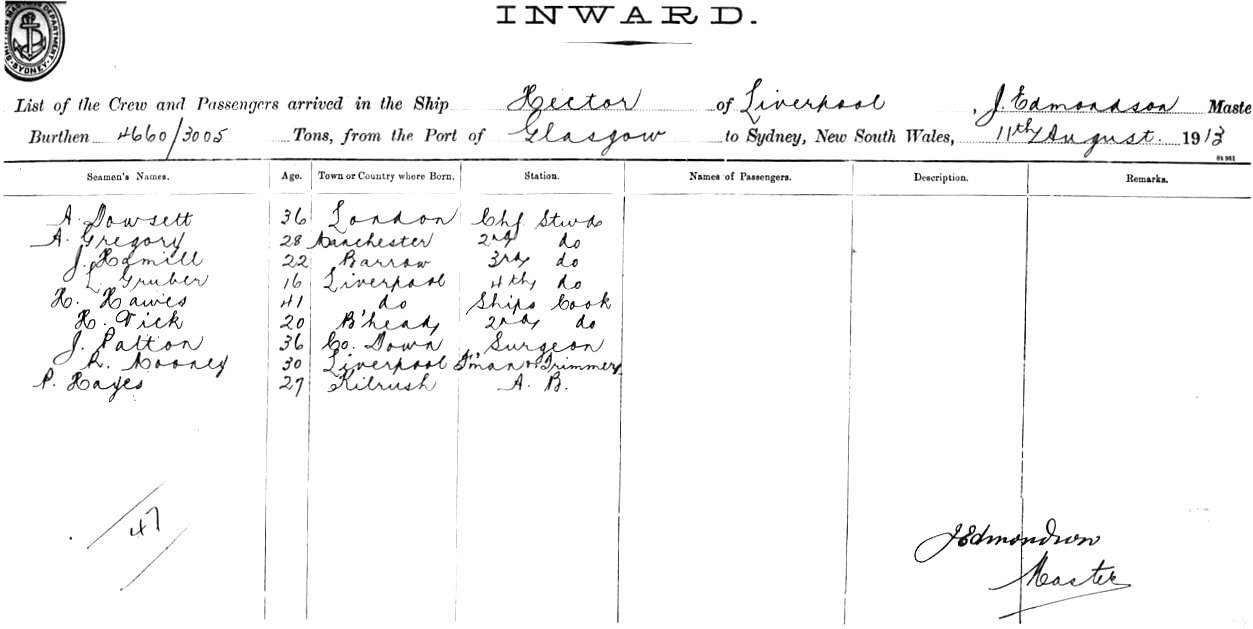 SHIPPING MASTERS DEPARTMENT · SYDNEY ·
INWARD.
List of the Crew and Passengers arrived in the Ship Hector of Liverpool, J. Edmondson Maste
Burthen 4660/3005 Tons, from the Port of Glasgow to Sydney, New South Wales, 11th August 1913
Seamen's Names. Age. Town or Country where Born. Station. Names of Passengers. Description. Remarks.
A. Dowsett 36 London Chf Stwd
A. Gregory 28 Manchester 2nd do
J. Hamill 22 Barrow 3rd do
L. Gruber 16 Liverpool 4th do
H. Hawes 41 do Ships Cook
H. Vick 20 B'head 2nd do
J. Patton 36 Co. Down Surgeon
R. Mooney 30 Liverpool F'man & Trimmer
P. Hayes 27 Kilrush A. B.
47
J Edmondson
Master